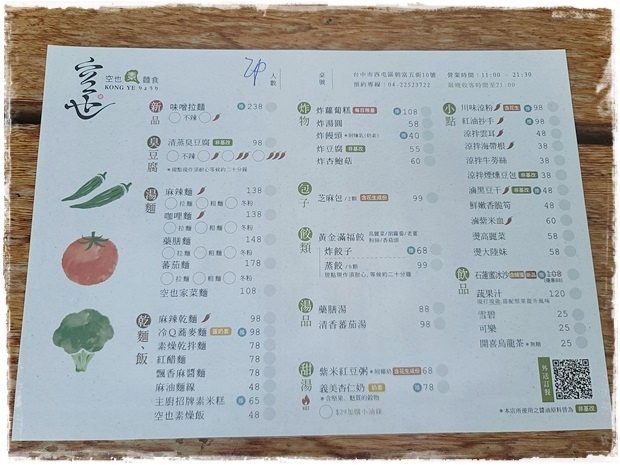 空也
空也 麵食
KONG YE
2P
人數
桌號
台中市西屯區朝富五街10號
預約專線:04-22523722
營業時間:11:00 - 21:30
新品
味噌拉麵 238
不辣
臭豆腐
清蒸臭豆腐 非基改 98
不辣
湯麵
麻辣麵 138
拉麵 粗麵 冬粉
咖哩麵 138
拉麵 粗麵 冬粉
藥膳麵 148
拉麵 粗麵 冬粉
蕃茄麵 178
拉麵 粗麵 冬粉
空也家菜麵 108
乾麵、飯
麻辣乾麵 98
冷Q蕎麥麵 98
素燥乾拌麵 78
紅醋麵 78
飄香麻醬麵 78
麻油麵線 78
主廚招牌素米糕 65
空也素燥飯 48
炸物
炸蘿蔔糕 每日限量 108
炸湯圓 58
炸饅頭 40
炸豆腐 非基改 55
炸杏鮑菇 60
包子
芝麻包/2顆 99
餃類
黃金滿福餃
炸餃子 68
蒸餃/9顆 99
湯品
藥膳湯 88
清香蕃茄湯 98
甜湯
紫米紅豆粥 68
義美杏仁奶 奶素 78
小點
川味涼粉 98
紅油抄手 98
涼拌雲耳 48
涼拌海帶根 38
涼拌牛蒡絲 38
涼拌煙燻豆包 非基改 38
滷黑豆干 非基改 48
鮮嫩香脆筍 48
滷紫米血 60
燙高麗菜 58
燙大陸妹 58
飲品
石蓮蜜冰沙 108
蔬果汁 120
雪碧 25
可樂 25
開喜烏龍茶 *無糖 25
外送訂餐
*本店所使用之醬油原料皆為 非基改